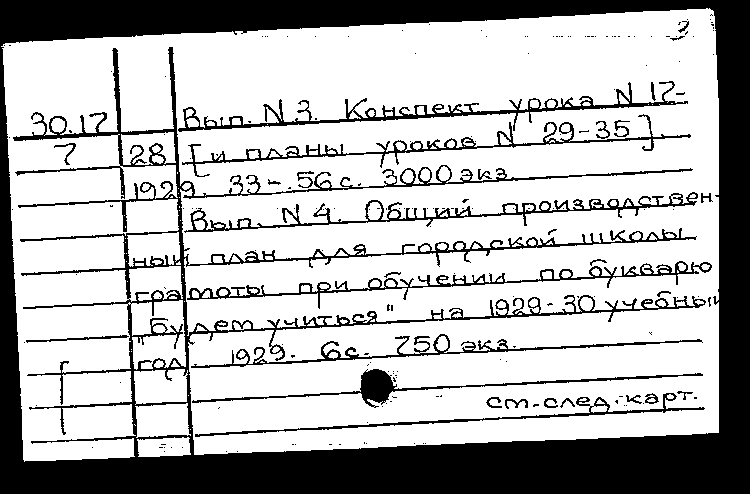 3
Вып. N 3. Конспект урока N 17-
30.17
7 28 [и планы уроков N 29-35].
1929. 33-56 с. 3000 экз.
Вып. N 4. Общий производствен-
ный план для городской школы
грамоты при обучении по букварю
"Будем учиться" на 1929-30 учебный
год. 1929. 6 с. 750 экз.
ст. след. карт.